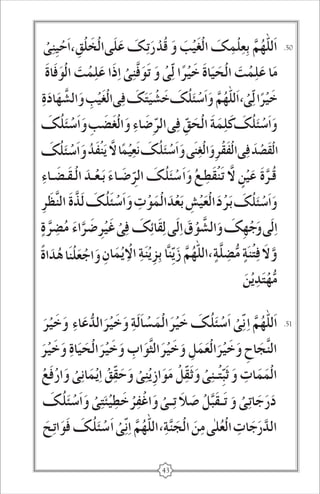 50. اَللّٰهُمَّ بِعِلْمِكَ الْغَيْبَ وَ قُدْرَتِكَ عَلَى الْخَلْقِ، اَحْيِنِىْ
مَا عَلِمْتَ الْحَيَاةَ خَيْرًا لِّىْ وَ تَوَفَّنِىْ اِذَا عَلِمْتَ الْوَفَاةَ
خَيْرًا لِّىْ، اَللّٰهُمَّ وَاَسْئَلُكَ خَشْيَتَكَ فِى الْغَيْبِ وَالشَّهَادَةِ
وَاَسْئَلُكَ كَلِمَةَ الْحَقِّ فِى الرِّضَاءِ وَالْغَضَبِ وَاَسْئَلُكَ
الْقَصْدَ فِى الْفَقْرِ وَالْغِنَى وَاَسْئَلُكَ نَعِيْمًا لَّا يَنْفَدُ وَاَسْئَلُكَ
قُرَّةَ عَيْنٍ لَّا تَنْقَطِعُ وَاَسْئَلُكَ الرِّضَاءَ بَعْدَ الْقَضَاءِ
وَاَسْئَلُكَ بَرْدَ الْعَيْشِ بَعْدَ الْمَوْتِ وَاَسْئَلُكَ لَذَّةَ النَّظَرِ
اِلٰى وَجْهِكَ وَالشَّوْقَ اِلٰى لِقَائِكَ فِىْ غَيْرِ ضَرَّاءَ مُضِرَّةٍ
وَّ لَا فِتْنَةٍ مُّضِلَّةٍ، اَللّٰهُمَّ زَيِّنَّا بِزِيْنَةِ الْاِيْمَانِ وَاجْعَلْنَا هُدَاةً
مُّهْتَدِيْنَ
51. اَللّٰهُمَّ اِنِّىْ اَسْئَلُكَ خَيْرَ الْمَسْأَلَةِ وَخَيْرَ الدُّعَاءِ وَ خَيْرَ
النَّجَاحِ وَخَيْرَ الْعَمَلِ وَ خَيْرَ الثَّوَابِ وَخَيْرَ الْحَيَاةِ وَ خَيْرَ
الْمَمَاتِ وَ ثَبِّتْنِىْ وَ ثَقِّلْ مَوَازِيْنِىْ وَ حَقِّقْ اِيْمَانِىْ وَارْفَعْ
دَرَجَاتِىْ وَ تَقَبَّلْ صَلَاتِىْ وَاغْفِرْ خَطِيْئَتِىْ وَاَسْئَلُكَ
الدَّرَجَاتِ الْعُلٰى مِنَ الْجَنَّةِ، اَللّٰهُمَّ اِنِّىْ اَسْئَلُكَ فَوَاتِحَ
43